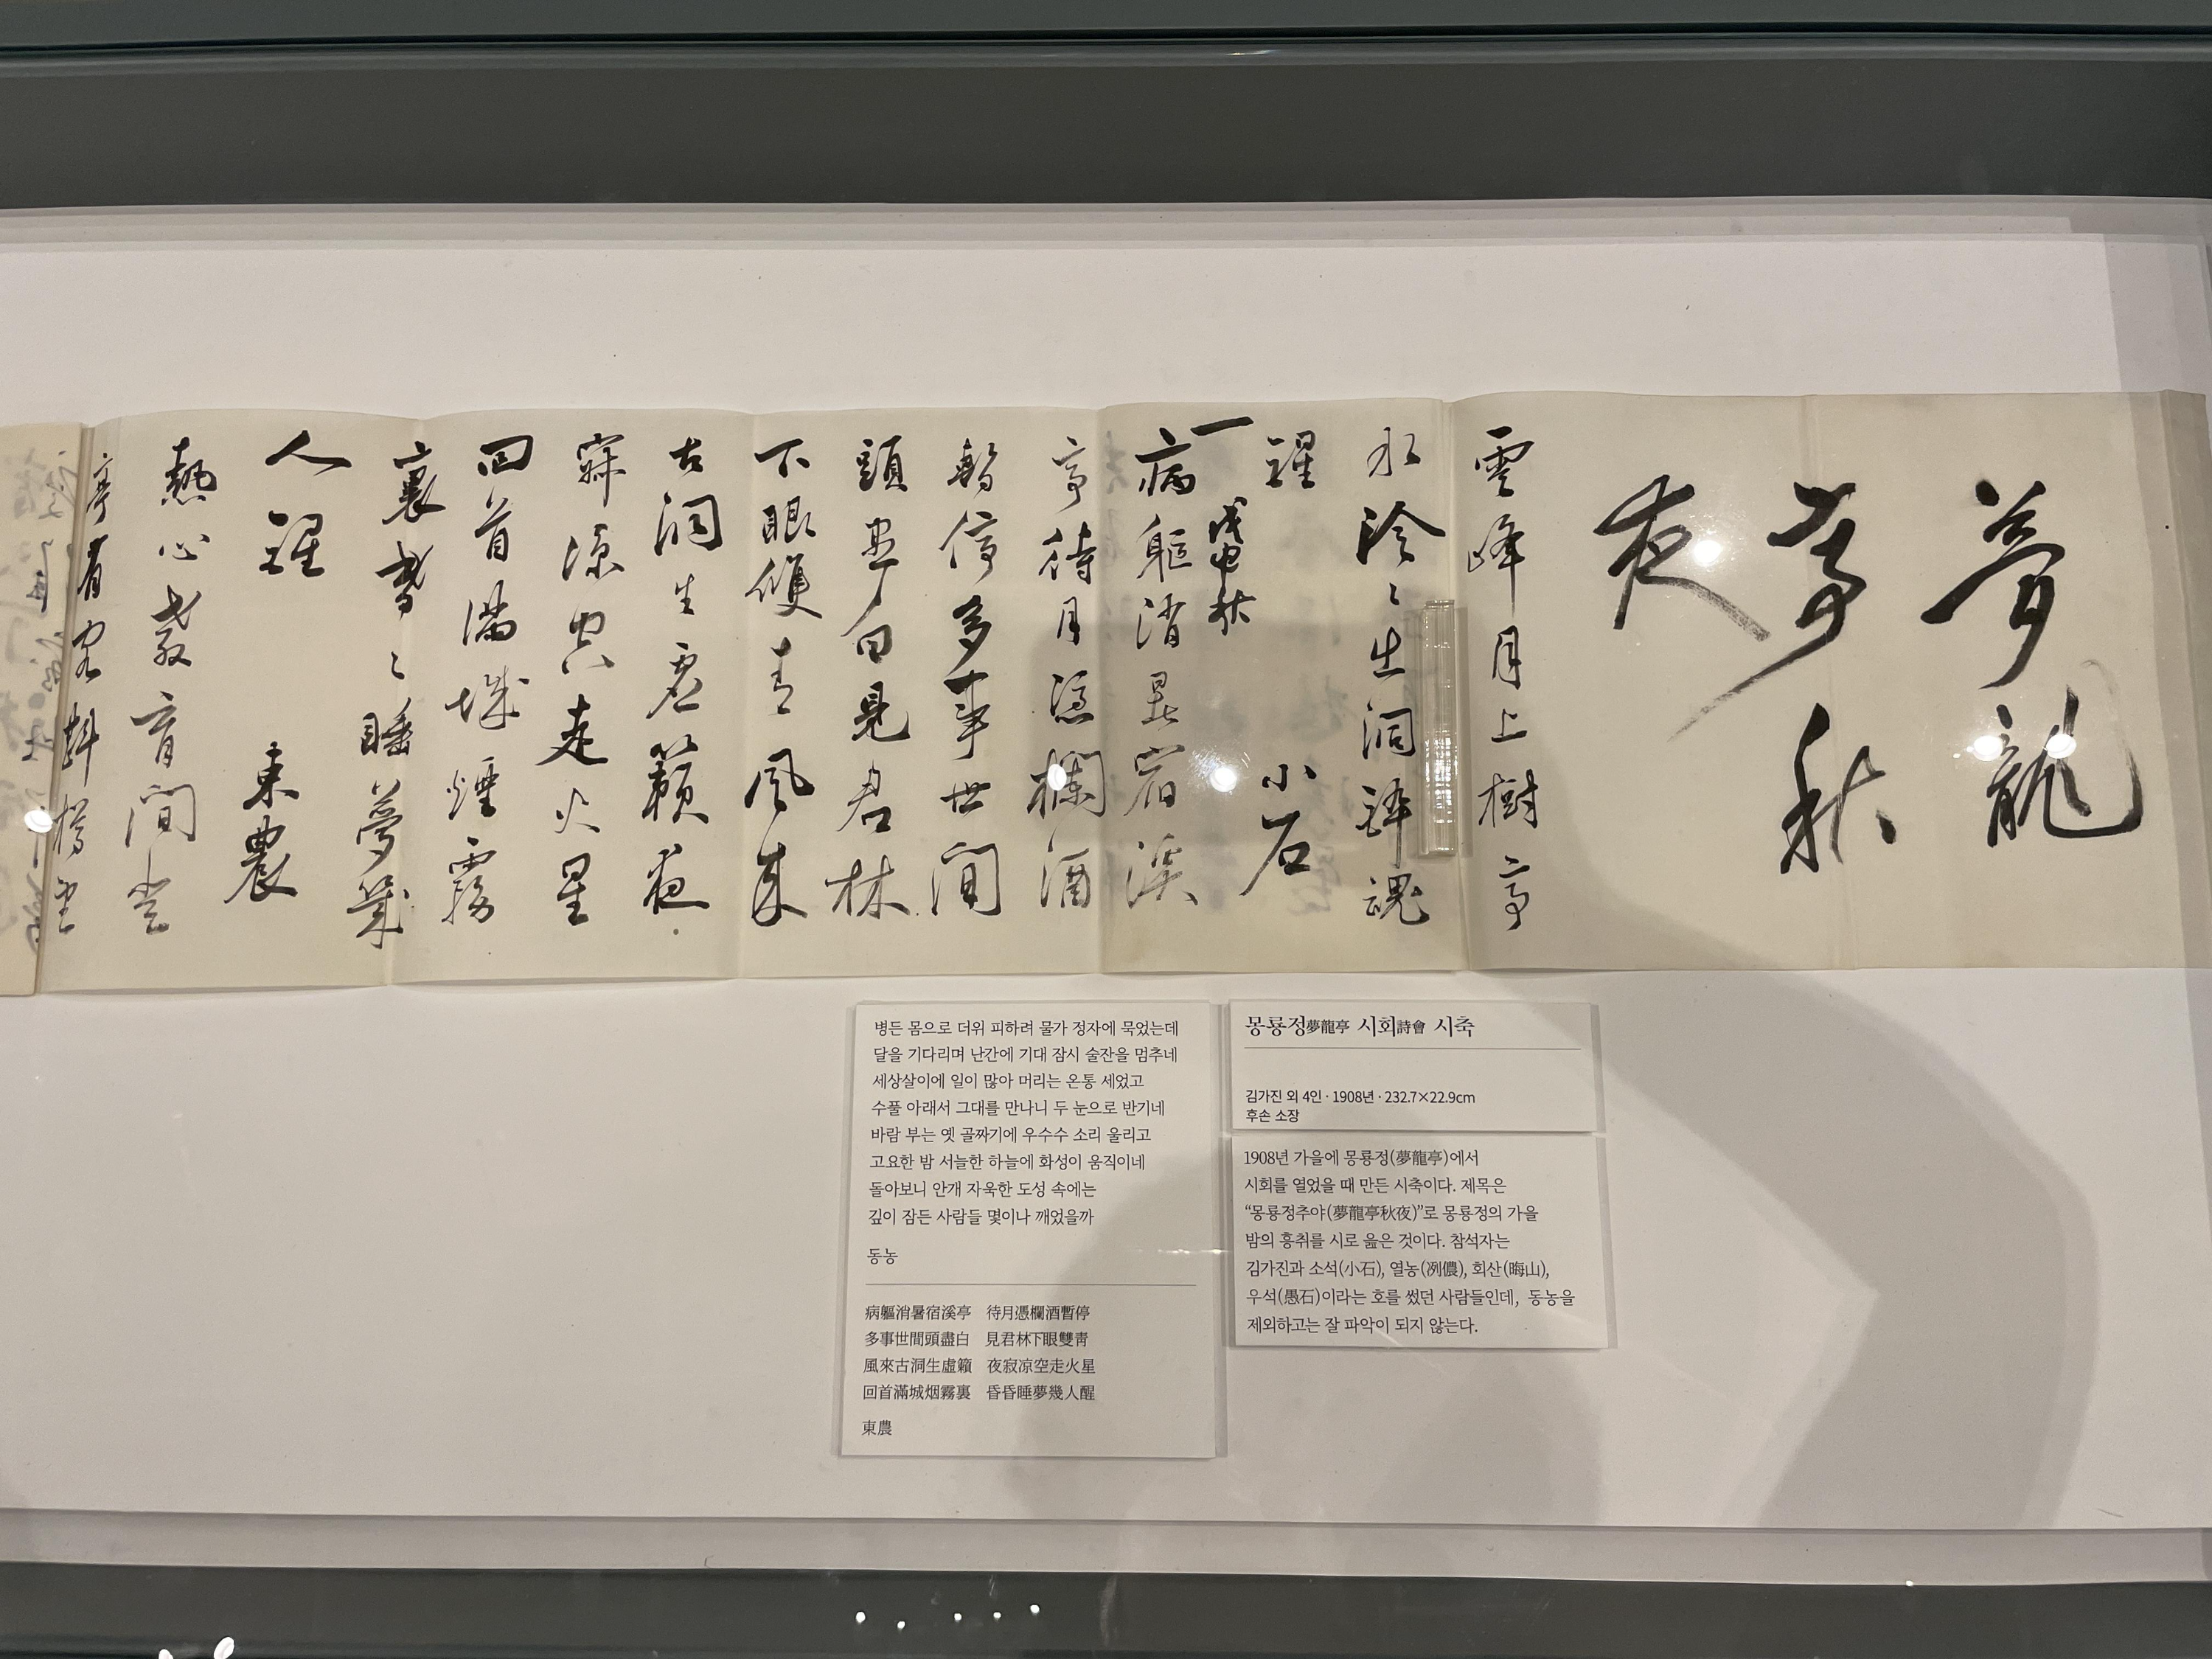 夢龍
亭秋
夜
雲峰月上樹亭
水泠〻生洞醉魂
醒 小石
戊申秋
病軀消暑宿溪
亭待月憑欄酒
暫停多事世間
頭盡白見君林
下眼雙青風来
古洞生虛籟夜
寂凉空走火星
回首滿城煙霧
裏昏〻睡夢幾
人醒 東農
熱心教育間
몽룡정夢龍亭 시회詩會 시축
김가진 외 4인 · 1908년 · 232.7×22.9cm
후손 소장
1908년 가을에 몽룡정(夢龍亭)에서
시회를 열었을 때 만든 시축이다. 제목은
“몽룡정추야(夢龍亭秋夜)”로 몽룡정의 가을
밤의 흥취를 시로 읊은 것이다. 참석자는
김가진과 소석(小石), 열농(冽儂), 회산(晦山),
우석(愚石)이라는 호를 썼던 사람들인데, 동농을
제외하고는 잘 파악이 되지 않는다.
병든 몸으로 더위 피하려 물가 정자에 묵었는데
달을 기다리며 난간에 기대 잠시 술잔을 멈추네
세상살이에 일이 많아 머리는 온통 세었고
수풀 아래서 그대를 만나니 두 눈으로 반기네
바람 부는 옛 골짜기에 우수수 소리 울리고
고요한 밤 서늘한 하늘에 화성이 움직이네
돌아보니 안개 자욱한 도성 속에는
깊이 잠든 사람들 몇이나 깨었을까
동농
病軀消暑宿溪亭 待月憑欄酒暫停
多事世間頭盡白 見君林下眼雙靑
風來古洞生虛籟 夜寂凉空走火星
回首滿城烟霧裏 昏昏睡夢幾人醒
東農